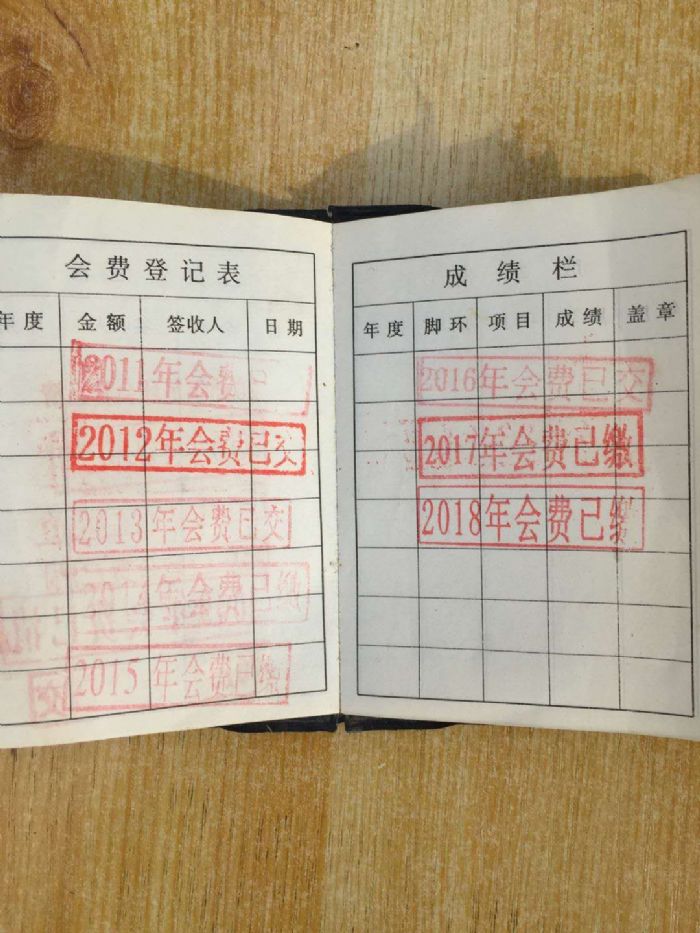 会费登记表
年度 金额 签收人 日期
2011年会费已
2012年会费已交
2013年会费已交
2014年会费已缴
2015年会费已缴
成绩栏
年度 脚环 项目 成绩 盖章
2016年会费已交
2017年会费已缴
2018年会费已缴